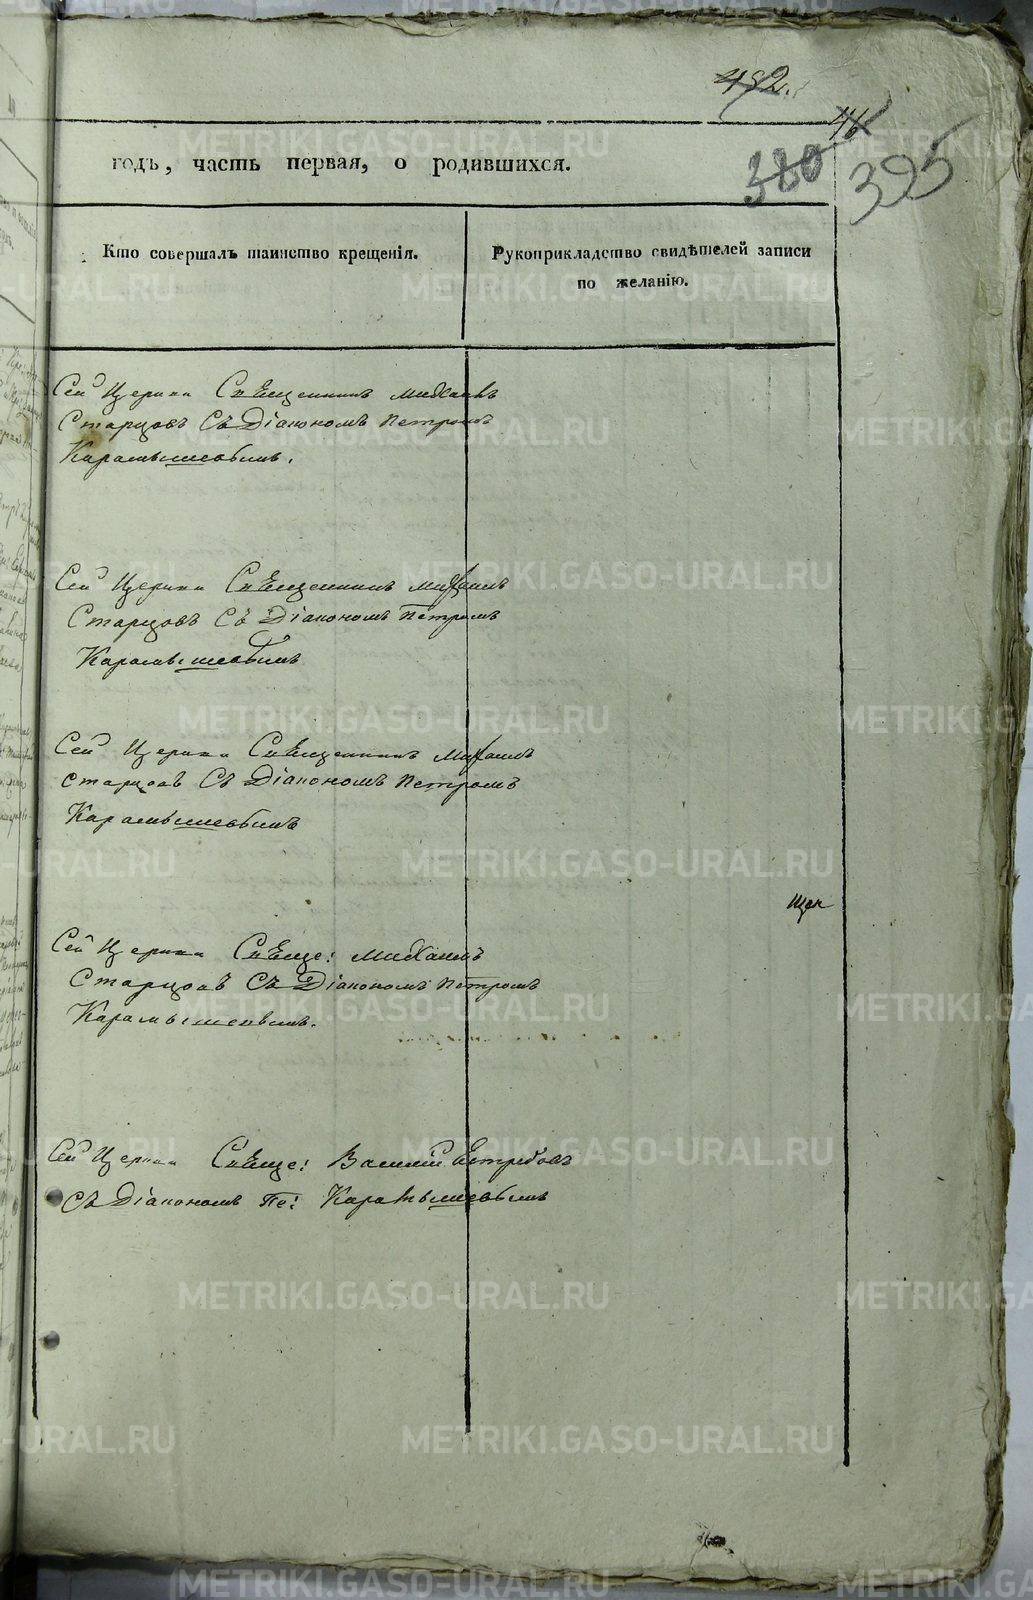 492.
46
380 395
годъ, часть первая, о родившихся.
Кто совершалъ таинство крещенія.
Рукоприкладство свидѣтелей записи
по желанію.
Сей Церкви Священникъ Михаилъ
Старцовъ Съ Діакономъ Петромъ
Карамышевымъ.
Сей Церкви Священникъ Михаилъ
Старцовъ Съ Діакономъ Петромъ
Карамышевымъ
Сей Церкви Священникъ Михаилъ
Старцовъ Съ Діакономъ Петромъ
Карамышевымъ
Сей Церкви Свяще: Михаилъ
Старцовъ Съ Діакономъ Петромъ
Карамышевымъ.
Сей Церкви Свяще: Василій Ястребовъ
Съ Діакономъ Пе: Карамышевымъ
METRIKI.GASO-URAL.RU